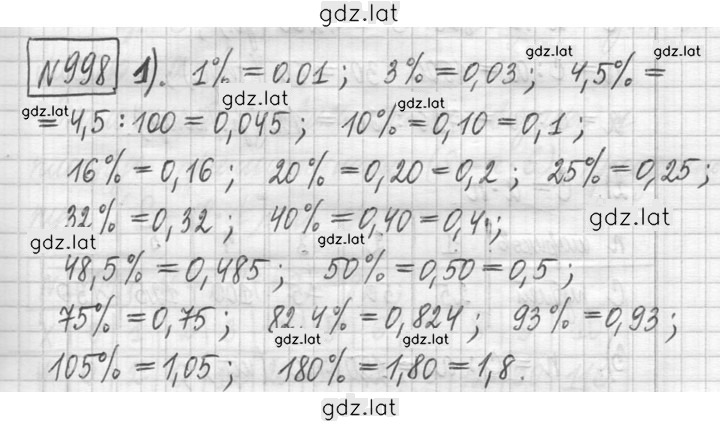 gdz.lat
№998 1). 1% = 0.01; 3% = 0,03; 4,5% =
gdz.lat gdz.lat
gdz.lat gdz.lat gdz.lat
= 4,5 : 100 = 0,045; 10% = 0,10 = 0,1;
16% = 0,16; 20% = 0,20 = 0,2; 25% = 0,25;
32% = 0,32; 40% = 0,40 = 0,4;
gdz.lat
gdz.lat gdz.lat
48,5% = 0,485; 50% = 0,50 = 0,5;
75% = 0,75; 82.4% = 0,824; 93% = 0,93;
gdz.lat gdz.lat
105% = 1,05; 180% = 1,80 = 1,8.
gdz.lat